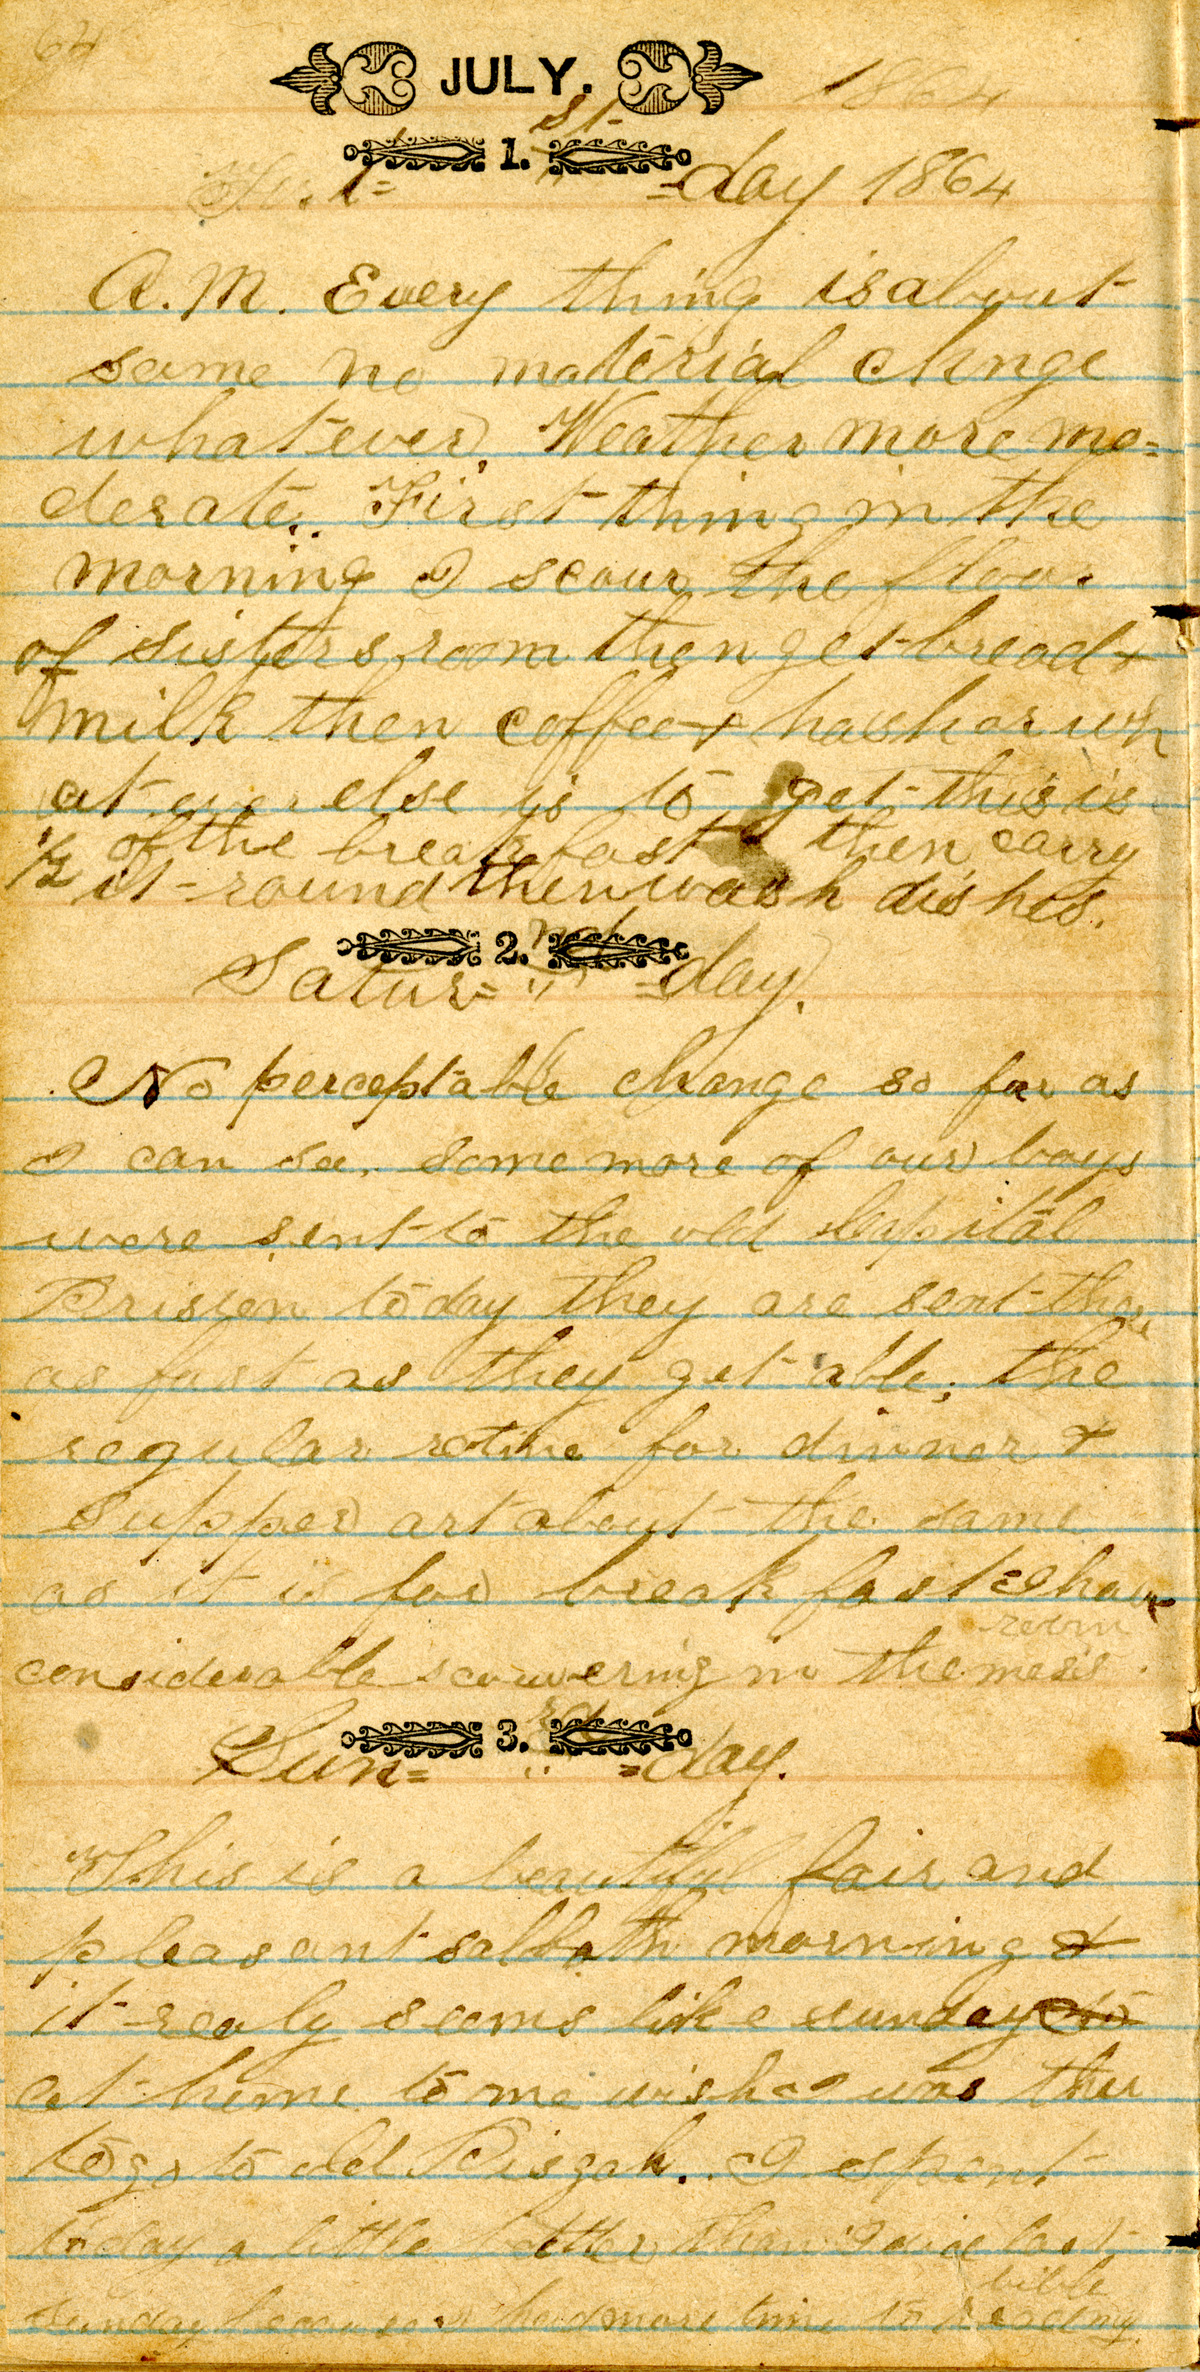 64
JULY. 1864
1. st
Fri = " = day 1864
A.M. Every thing is about
same no material chnge
whatever. Weather more mo=
derate. First thing in the
morning I scour the floor
of sisters room then get bread &
milk then coffee & hash or wh
at ever else is to get this is
of the breakfast then carry
1/2 it round then wash dishes.
2. nd
Satur= " = day.
No perceptable change so far as
I can se. some more of our boys
were sent to the old Hospital
Prision today they are sent there
as fast as they get able; the
regular rotine for dinner &
supper art about the same
as it is for breakfast I have
room
considerable scouering in the mess
3. rd
Sun= " = day.
This is a beautiful fair and
pleasant sabbath morning &
it realy seems like sunday to
at home to me wish I was ther
to go to old Pisgah. I spent
today a little better than I did last
bible
sunday because I had more time to reading